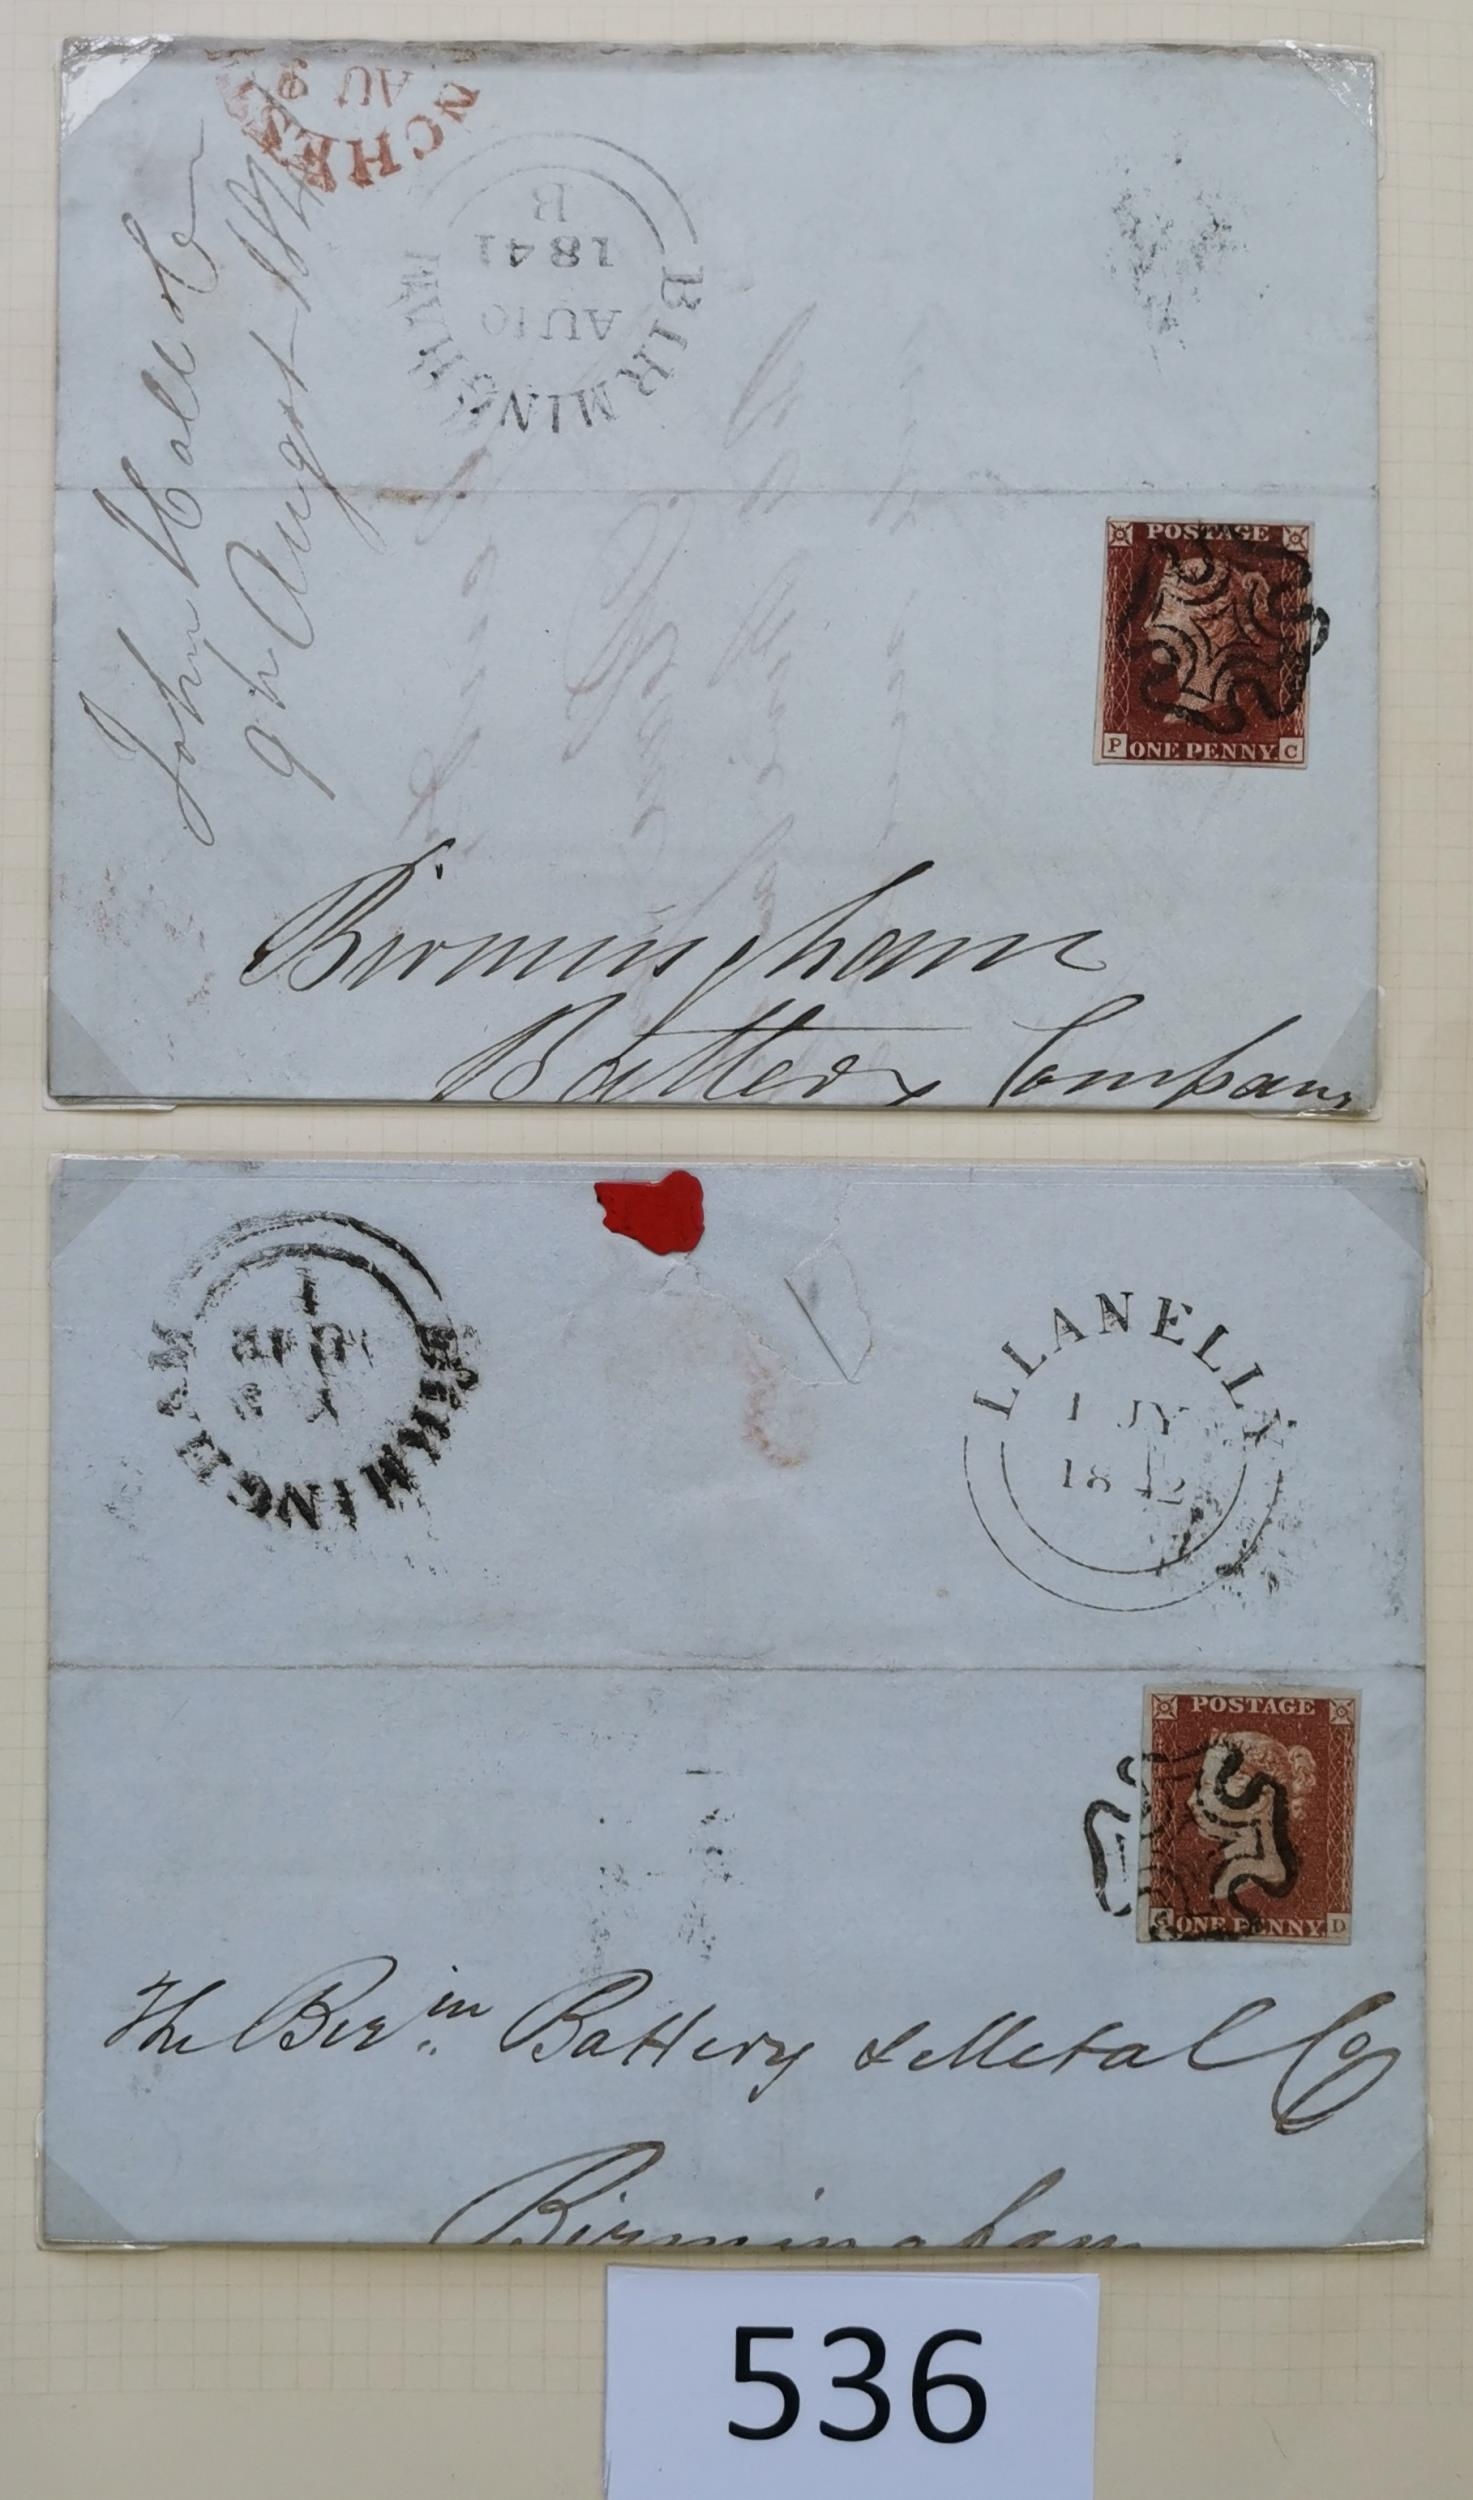 NCHES
AU 9
BIRMINGHAM
AU 10
1841
B
John Hall &
9th August 1841
POSTAGE
P ONE PENNY. C
Birmingham
Battery Company
BIRMINGHAM
LLANELLY
1 JY
1842
POSTAGE
ONE PENNY. D
The Birm Battery & Metal Co
Birmingham
536